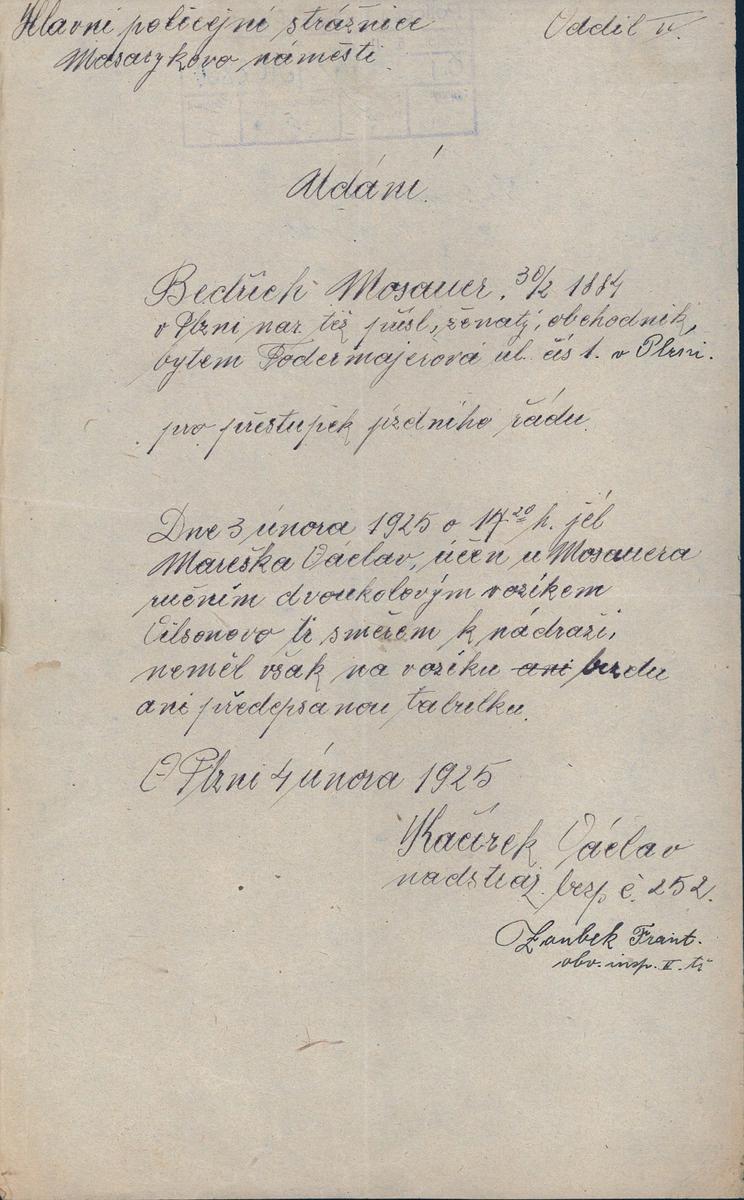 Hlavní policejní strážnice Oddíl V.
Masarykovo náměstí.
Udání.
Bedřich Mosauer, 30/2 1884
v Plzni nar. též přísl., ženatý, obchodník,
bytem Fodermajerová ul. čís 1. v Plzni.
pro přestupek jízdního řádu.
Dne 3 února 1925 o 14 20 h. jel
Mareška Václav, učen u Mosauera
ručním dvoukolovým vozíkem
Vilsonovo tř. směrem k nádraži,
neměl však na vozíku ani brzdu
ani předepsanou tabulku.
V Plzni 4 února 1925
Kačírek Václav
nadstráž. bezp. č. 252.
Zoubek Frant.
obv. insp. II. tř